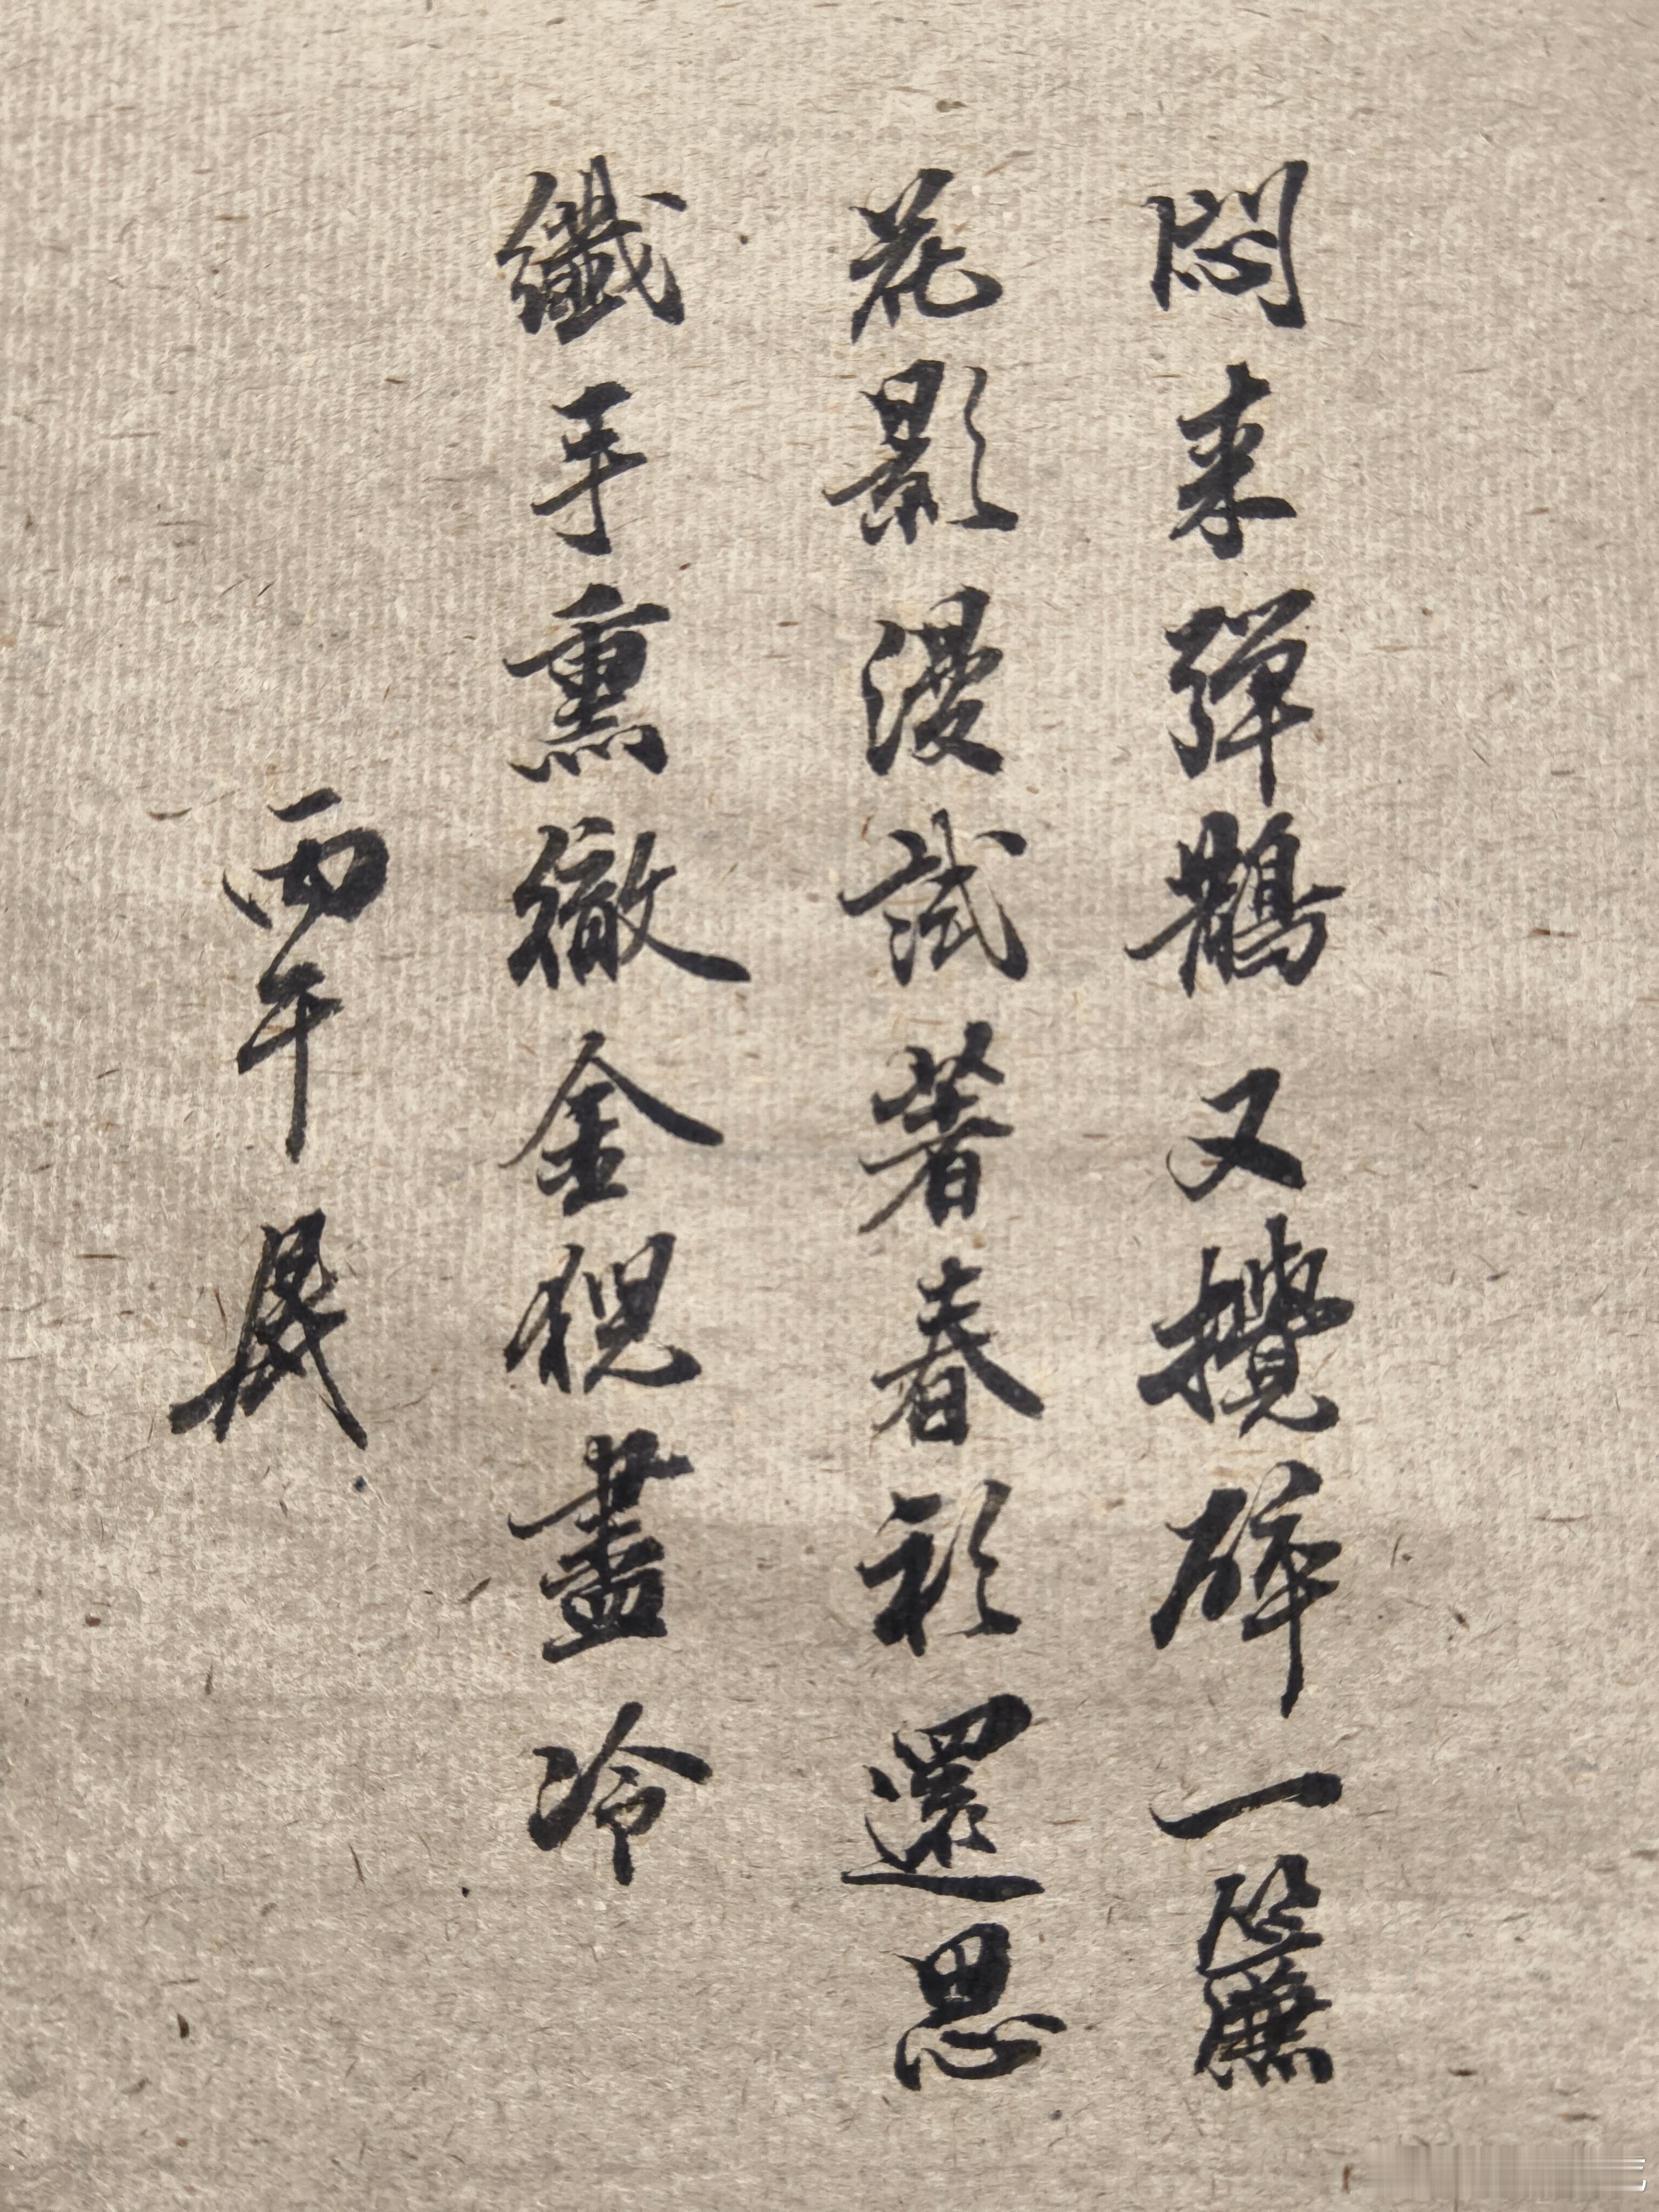 悶来彈鵲又攪碎一簾
花影漫試著春衫還思
纖手熏徹金猊盡冷
丙午晟